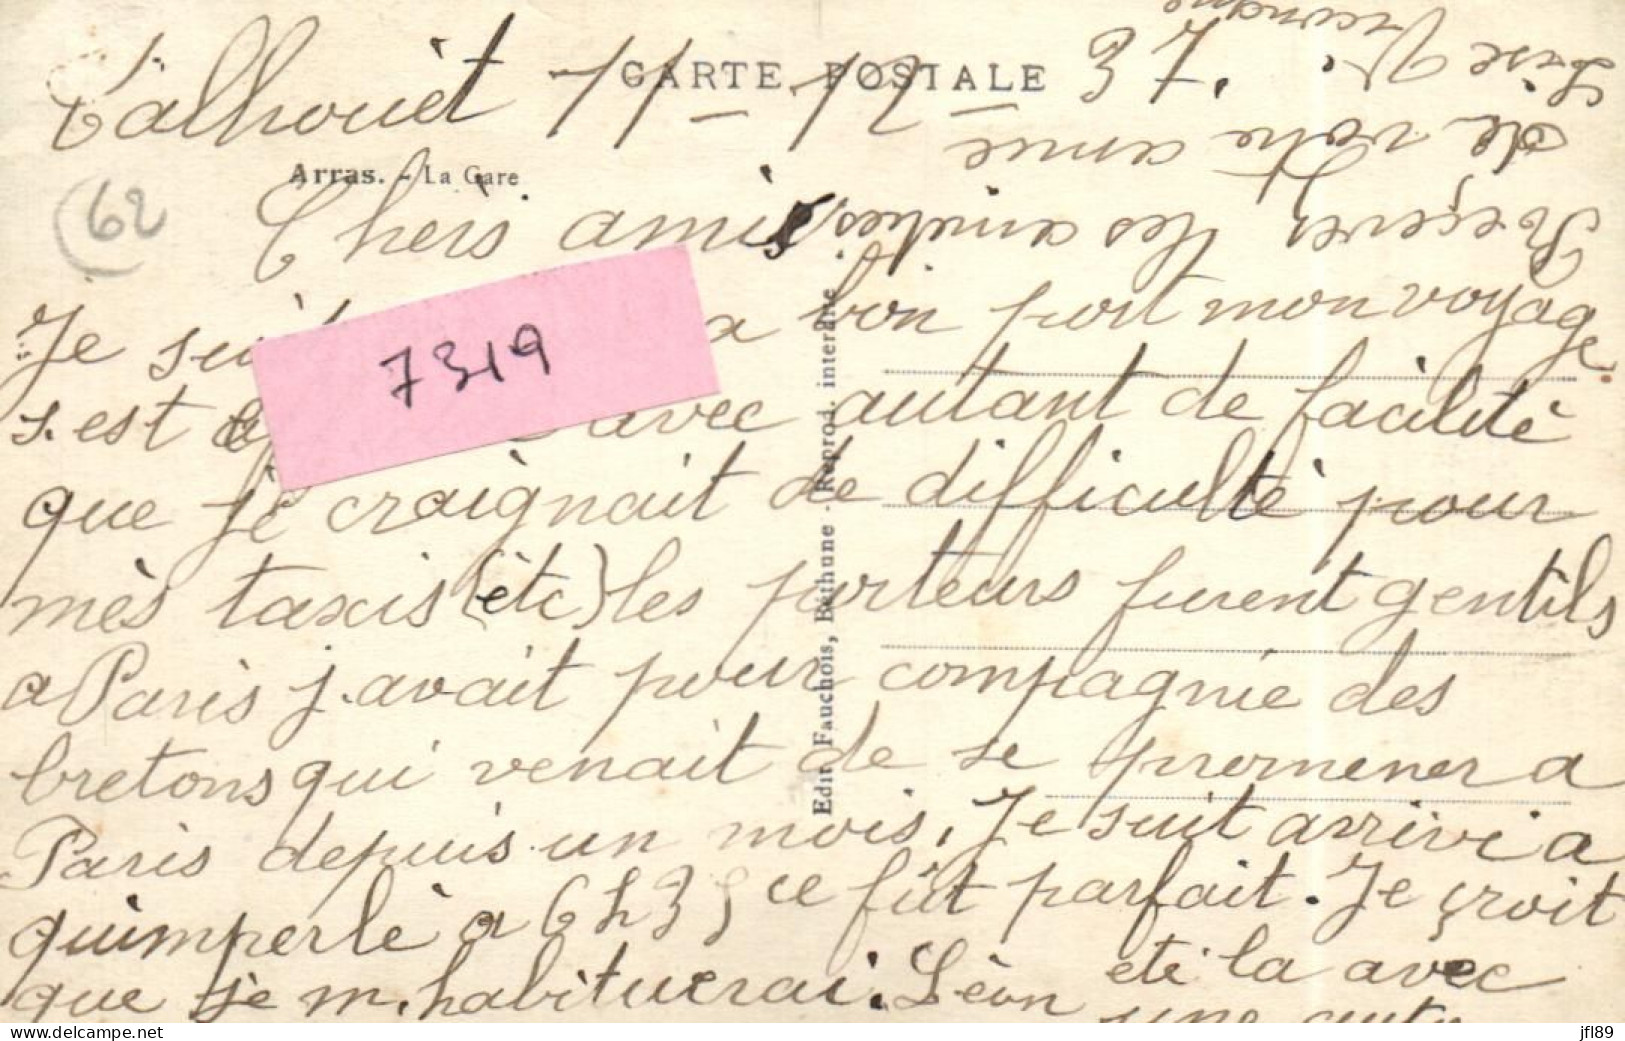 Talhouët 11-12-37.
CARTE POSTALE
Arras. - La Gare
62
Chers amis
Je bon port mon voyage
s.est avec autant de facilité
que je craignait de difficulté pour
mès taxis (ètc) les porteurs furent gentils
a Paris j.avait pour compagnie des
bretons qui venait de se promener a
Paris depuis un mois. Je suit arrivi a
quimperlè a 6h35 ce fût parfait. Je çroit
que je m.habituerai. Lèon eté la avec
une
Reçever les amities
de votre amie
Lise
7319
Edit Fauchois, Béthune - Reprod. interdite
delcampe.net
jfl89